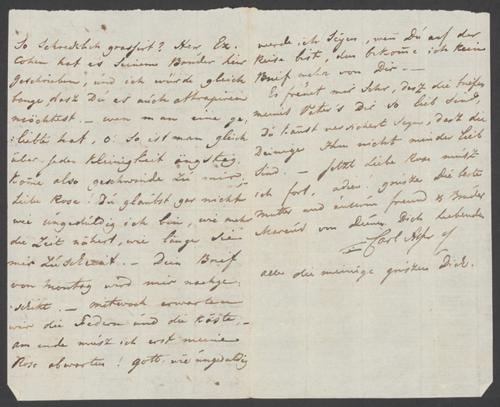 So Schrecklich grassirt? Her, Ex.
Cohen hat es Seinem Bruder hier
geschrieben, und ich würde gleich
bange, dasz Du es auch attrapiren
möchtest. — wen man eine ge-
liebte hat, o! So ist man gleich
über jeden Kleinigkeit ängstig
Kome also geschwinde zu mir,
Liebe Rose! Du glaubst gar nicht
wie ungedüldig ich bin, wie mehr
die Zeit nähert, wie länge Sie
mir zu Scheint. — Dein Brief
von Montag wird mir nachge-
schikt. — Mitwoch erwarten
wir die Federn und die Köste, —
am ende müsz ich erst meine
Rose abwarten! gott, wie üngedüldig
werde ich Seyn, wen Dü auf der
Reise bist, den bekome ich keine
Brief mehr von Dir. —
Es freut mir Sehr, dasz die briefe
meines Vater's Dir so lieb Sind,
Dü kanst versichert Seyn, dasz die
Deinige Ihm nicht minder Lieb
Sind. — Jetzt Liebe Rose müsz
ich fort, adeu. grüsze Die beste
Mutter und ünsern freund & Brüder
Marcus von Deinen Dich liebenden
Carl
alle die meinige grüszen Dich.